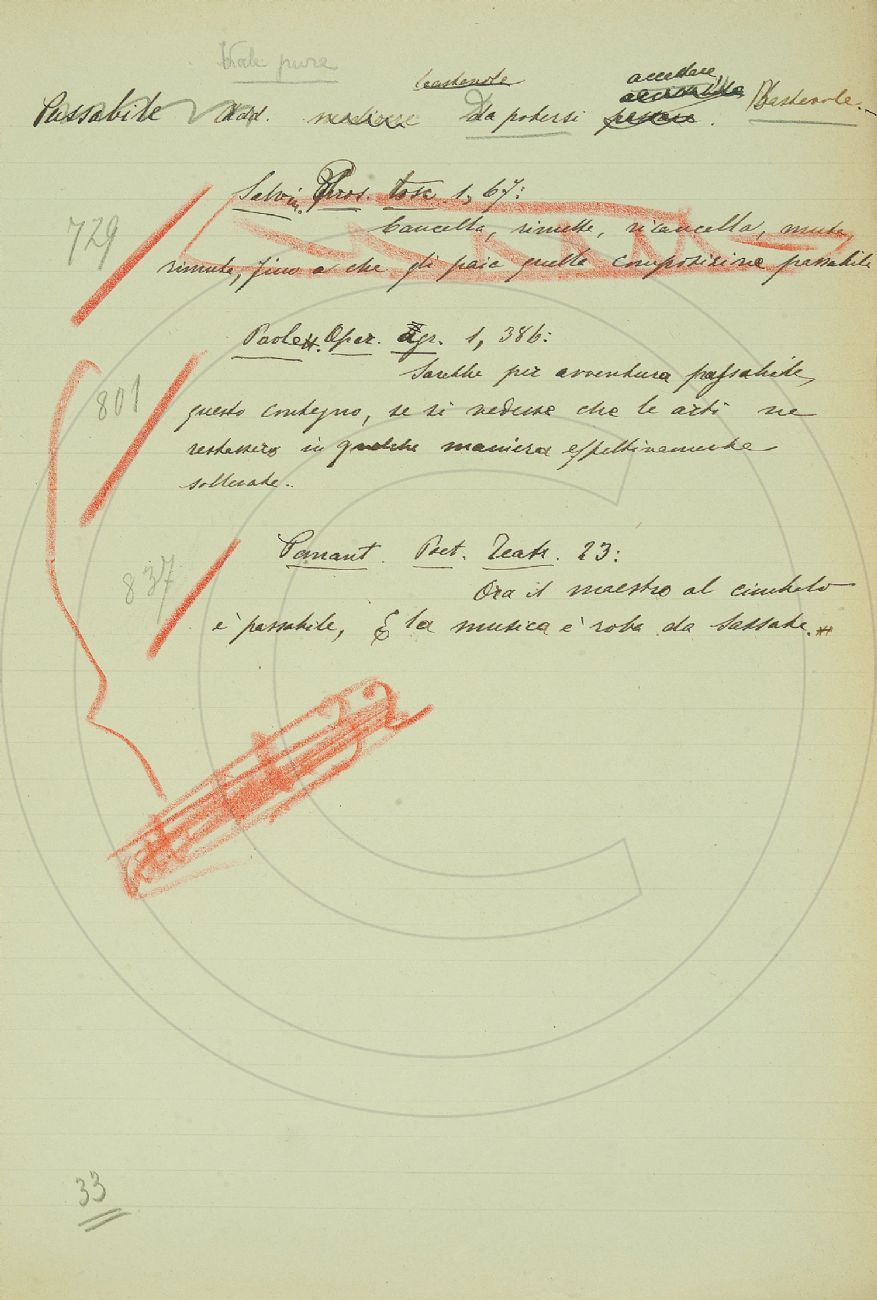 pure
bastevole accettare
Passabile Add. Da potersi Bastevole.
Salvin. Pros. tosc. 1, 67:
729
Cancella, rimette, ricancella, muta,
rimuta, fino a che gli paia quella composizione passabile
Paolett. Oper. agr. 1, 386:
801
Sarebbe per avventura passabile
questo contegno, se si vedesse che le arti ne
restassero in qualche maniera effettivamente
sollevate.
Panant. Poet. Teatr. 23:
837
Ora il maestro al cimbalo
è passabile, E la musica è roba da sassate.
33